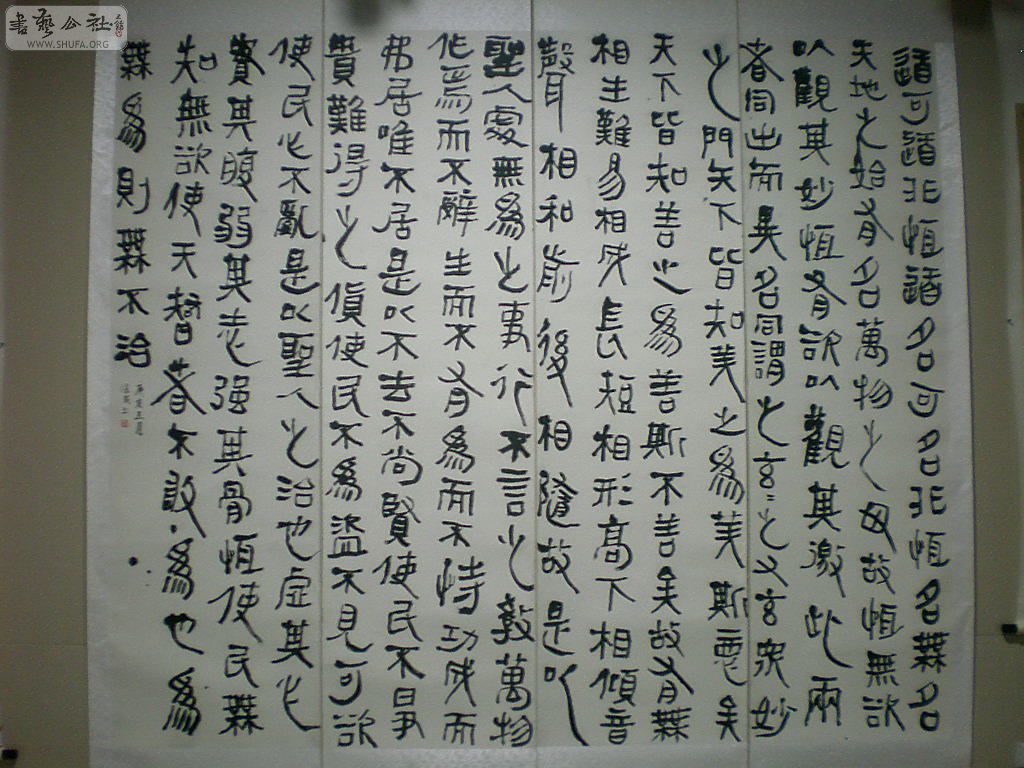 書藝公社
WWW.SHUFA.ORG
道可道非恒道名可名非恒名無名
天地之始有名萬物之母故恒無欲
以觀其妙恒有欲以觀其激此兩
者同出而異名同謂之玄〻之又玄衆妙
之門天下皆知美之爲美斯惡矣
天下皆知善之爲善斯不善矣故有無
相生難易相成長短相形高下相傾音
聲相和前後相隨故是以
聖人處無爲之事行不言之教萬物
作焉而不辭生而不有爲而不恃功成而
弗居唯不居是以不去不尚賢使民不爭
貴難得之貨使民不爲盜不見可欲
使民心不亂是以聖人之治也虛其心
實其腹弱其志强其骨恒使民無
知無欲使天智者不敢爲也爲
無爲則無不治